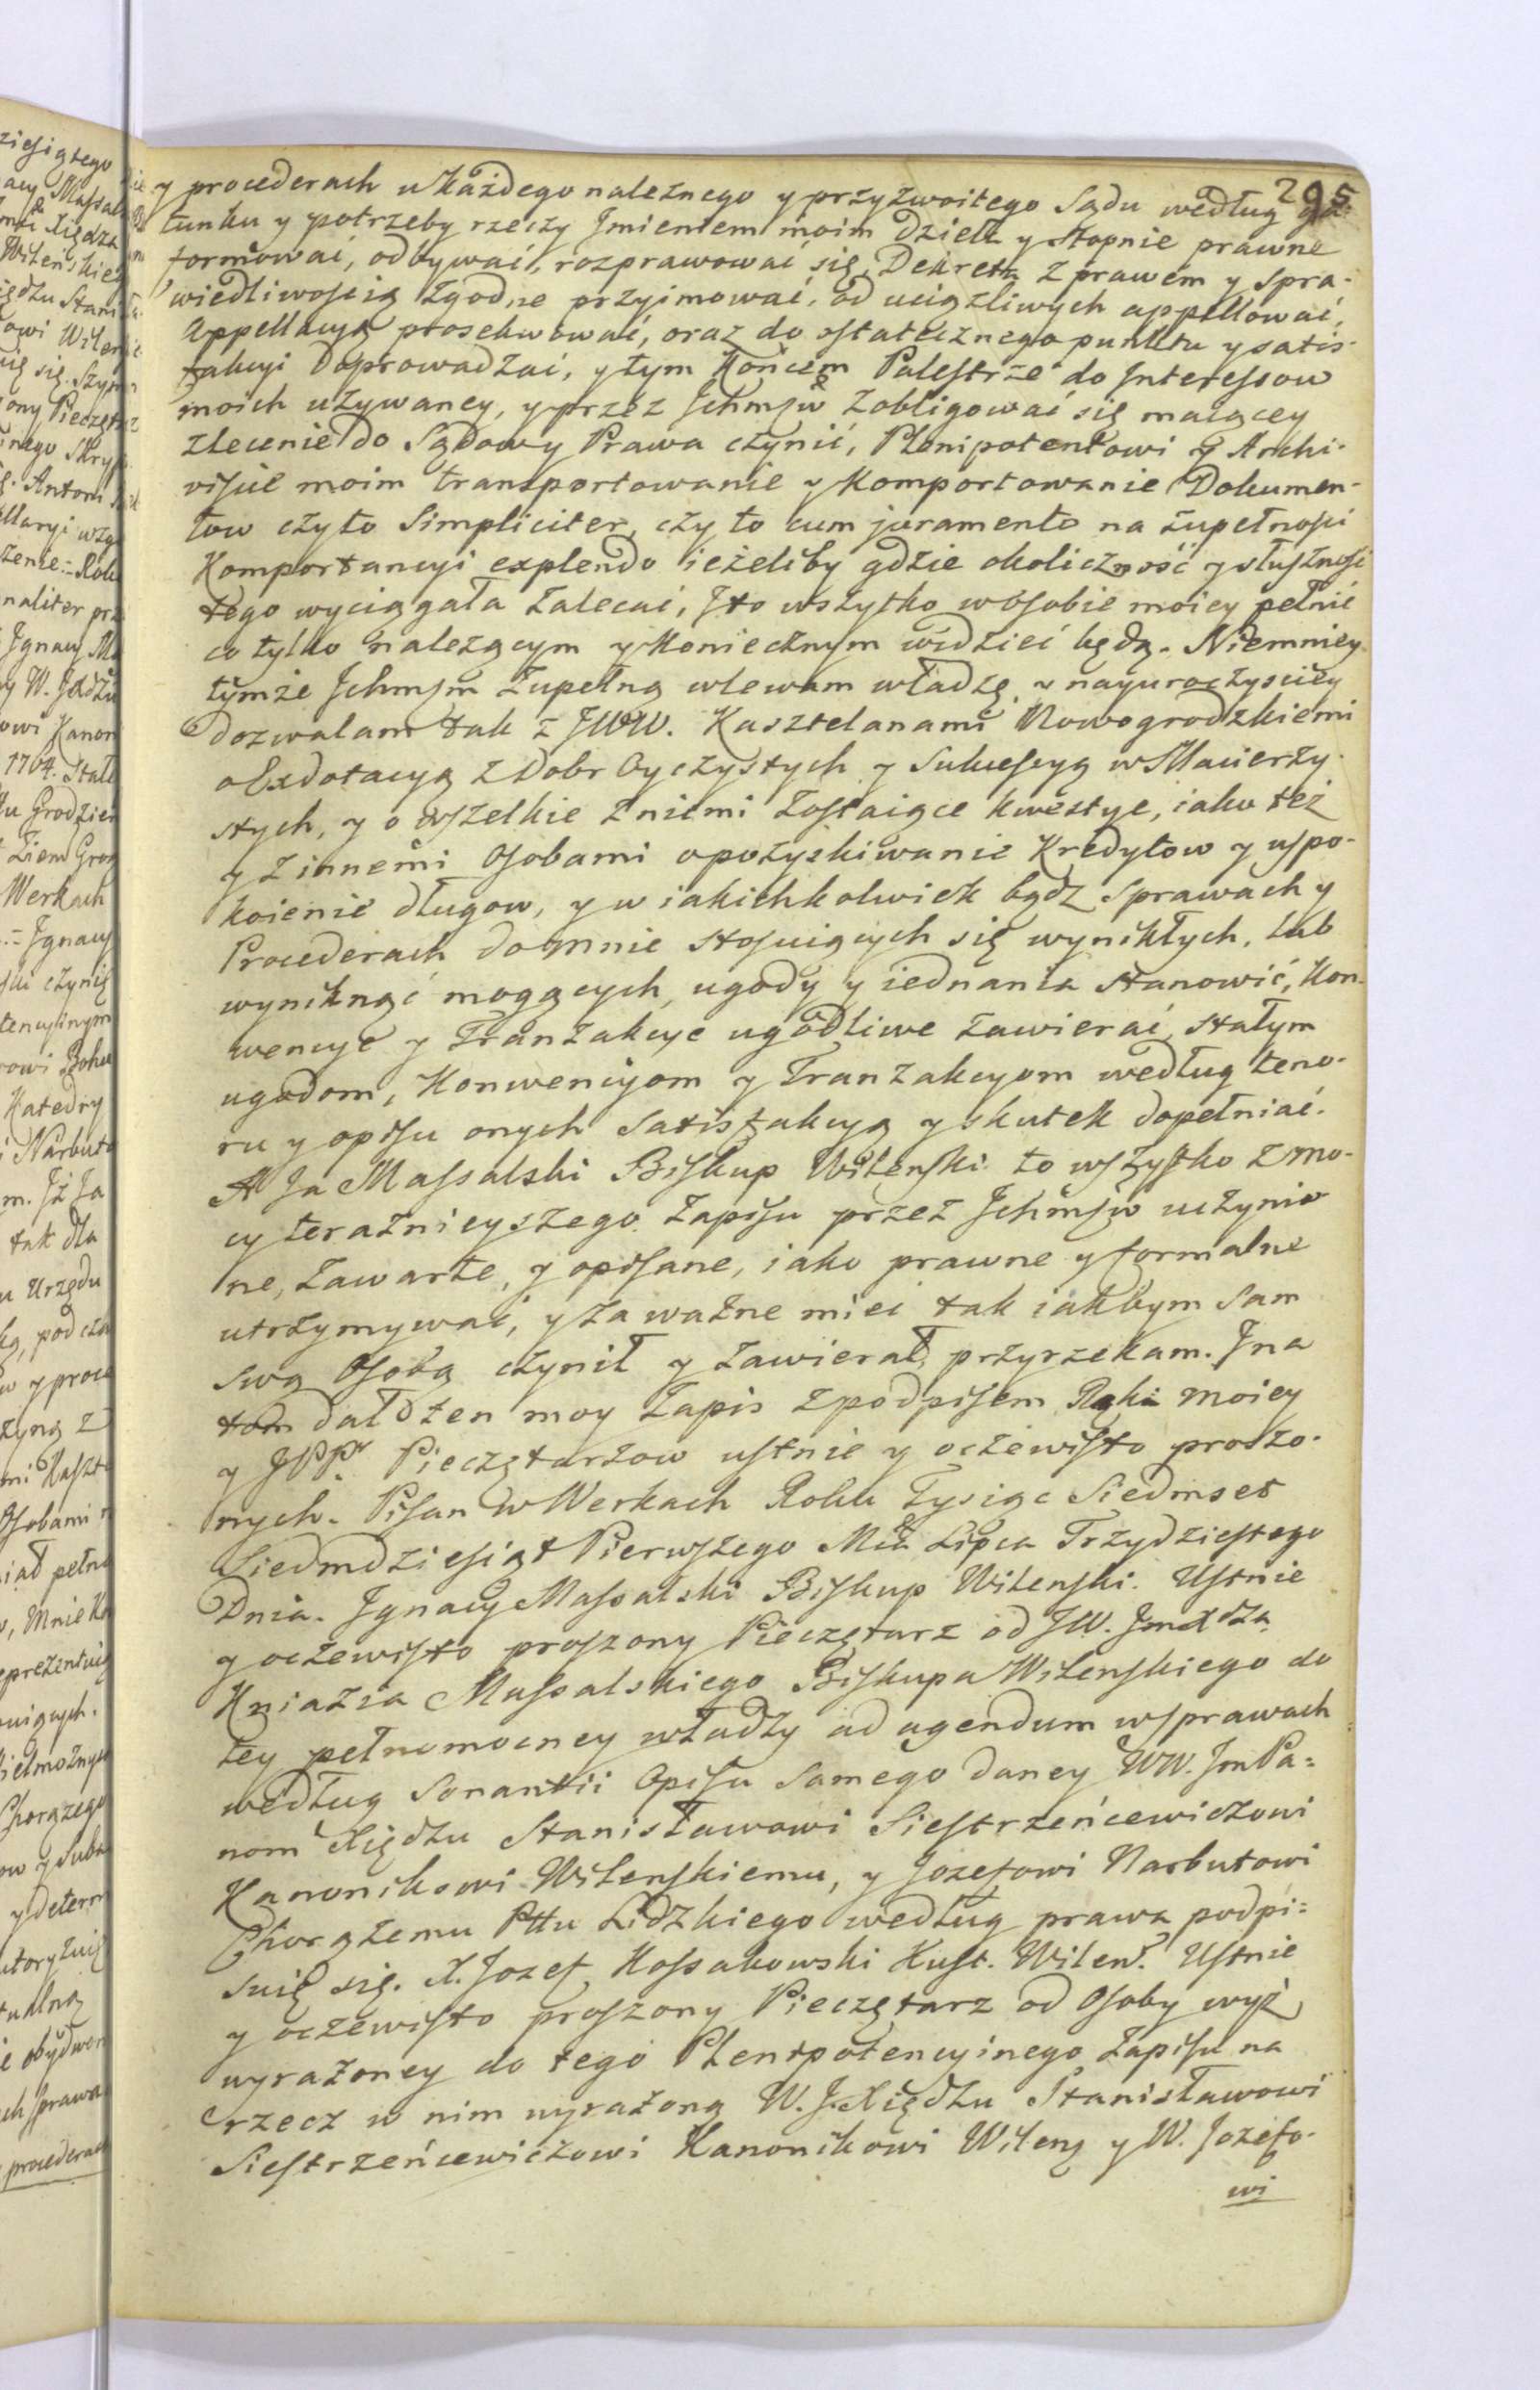 295
y procederach u każdego należnego y przyzwoitego Sądu według ga-
tunku y potrzeby rzeczy Jmieniem moim dzieła y stopnie prawne
formować, odbywać, rozprawować się, Dekreta z prawem y spra-
wiedliwością zgodne przyimować, od uciążliwych appellować,
Appellacyą prosekwować, oraz do ostatecznego punktu y satis-
fakcyi doprowadzać, y tym Końcem Palestrze do Interessow
moich używaney, y przez Jchmsciw zobligować się maiącey
zlecenie do Sądowy Prawa czynić, Plenipotentowi y Archi-
viście moim transportowanie y Komportowanie Dokumen-
tow czyto Simpliciter, czy to cum juramento na zupełności
Komportancyi explendo ieżeliby gdzie okoliczność y słuszność
tego wyciągała zalecać, J to wszytko w osobie moiey pełnić
co tylko należącym y Koniecznym widzieć będą. Niemniey
tymże Jchmsm zupełną wlewam władzę, y nayuroczyściey
dozwalam tak z JWW. Kasztelanami Nowogrodzkiemi
o Exdotacyą z Dobr Oyczystych y Sukcessyą w Macierzy-
stych, y o wszelkie z niemi zostaiące kwestye, iako też
y z innemi Osobami o pozyskiwanie Kredytow y uspo-
koienie długow, y w iakichkolwiek bądz Sprawach y
Procederach do mnie stosuiących się wynikłych, lub
wyniknąć mogących, ugody y iednania stanowić, Kon-
wencye y Tranzakcye ugodliwe zawierać, stałym
ugodom, Konwencyom y Tranzakcyom według teno-
ru y opisu onych Satisfakcyą y skutek dopełniać.
A Ja Massalski Biskup Wilenski to wszystko z mo-
cy teraznieyszego Zapisu przez Jchmsciw uczynio
ne, zawarte, y opisane, iako prawne y formalne
utrzymywać, y za ważne mieć tak iakbym Sam
swą Osobą czynił y zawierał, przyrzekam. J na
tom dał ten moy Zapis z podpisem Ręki moiey
y JPP. Pieczętarzow ustnie y oczewisto proszo-
nych. Pisan w Werkach Roku Tysiąc Siedmset
Siedmdziesiąt Pierwszego Mca Lipca Trzydziestego
Dnia. Jgnacy Massalski Biskup Wilenski. Ustnie
y oczewisto proszony Pieczętarz od JW. JmXdza
Kniazia Massalskiego Biskupa Wilenskiego do
tey pełnomocney władzy ad agendum w sprawach
według Sonantii Opisu Samego daney WW. JmPa=
nom Xiędzu Stanisławowi Siestrzeńcewiczowi
Kanonikowi Wilenskiemu, y Jozefowi Narbutowi
Chorążemu Pttu Lidzkiego według prawa podpi=
suię się. X. Jozef Kossakowski Kust. Wilen. Ustnie
y oczewisto proszony Pieczętarz od Osoby wyż
wyrażoney do tego Plenipotencyinego Zapisu na
rzecz w nim wyrażoną W. J. Xiędzu Stanisławowi
Siestrzeńcewiczowi Kanonikowi Wilen y W. Jozefo-
wi